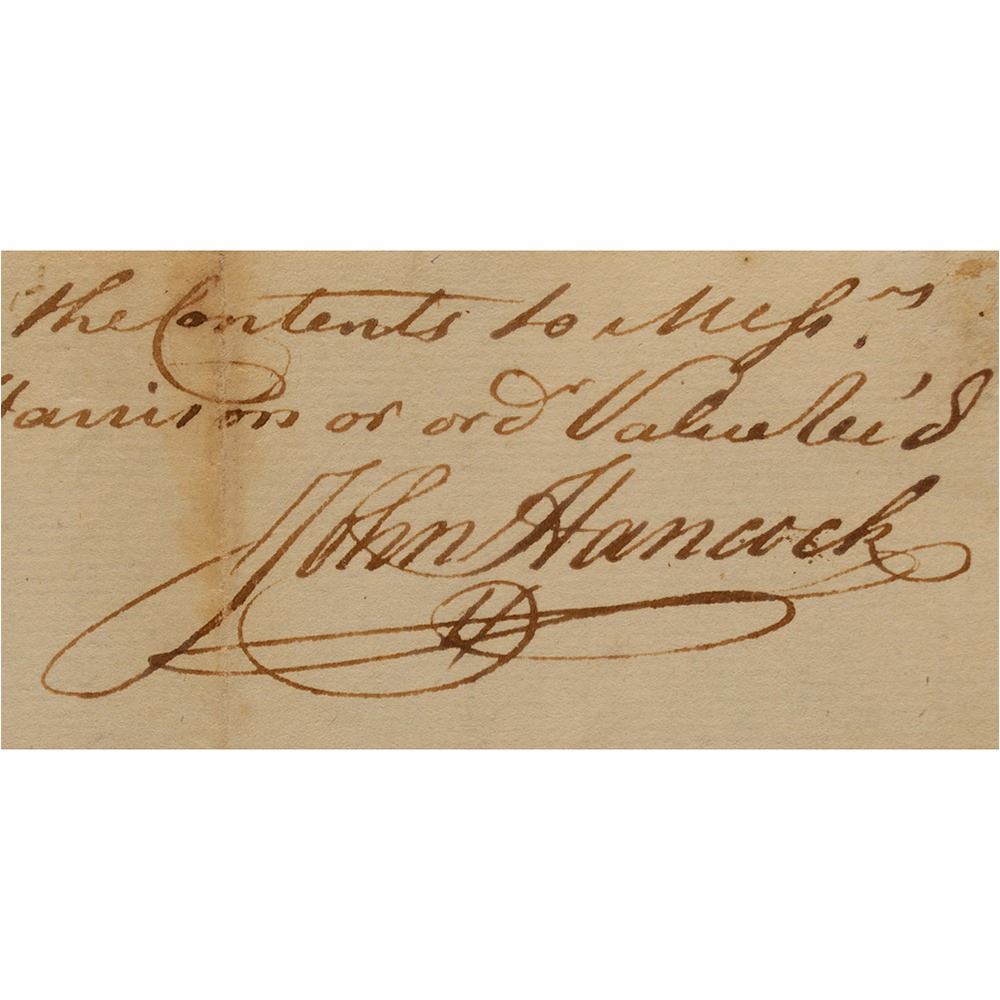 the Contents to Messrs
Harrison or ordr Value Rec'd
John Hancock